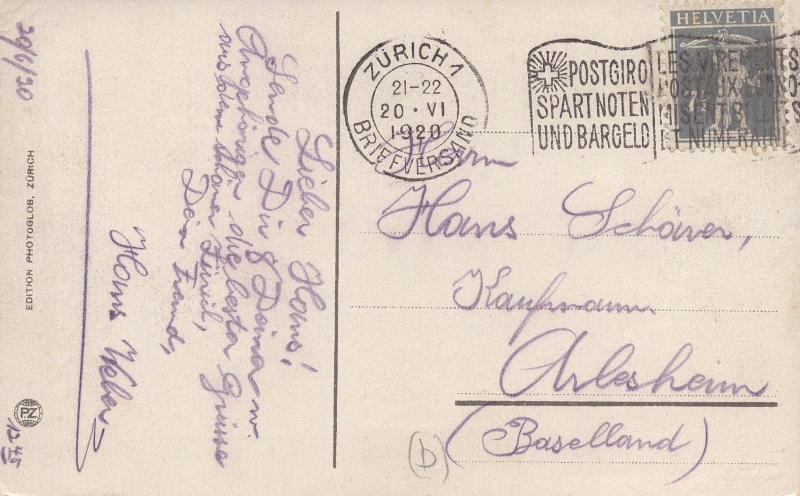 20/6/20
Lieber Hans!
Sende Dir & Deinen w.
Angehörigen die besten Grüsse
aus dem schönen Zürich,
Dein Freund,
Hans Weber
EDITION PHOTOGLOB, ZÜRICH
PZ
ZÜRICH 1
21-22
20 · VI
1920
BRIEFVERSAND
POSTGIRO
SPART NOTEN
UND BARGELD
LES VIREMENTS
POSTAUX
ET NUMERAIRE
HELVETIA
Herrn
Hans Schärer,
Kaufmann
Arlesheim
(Baselland)
(b)